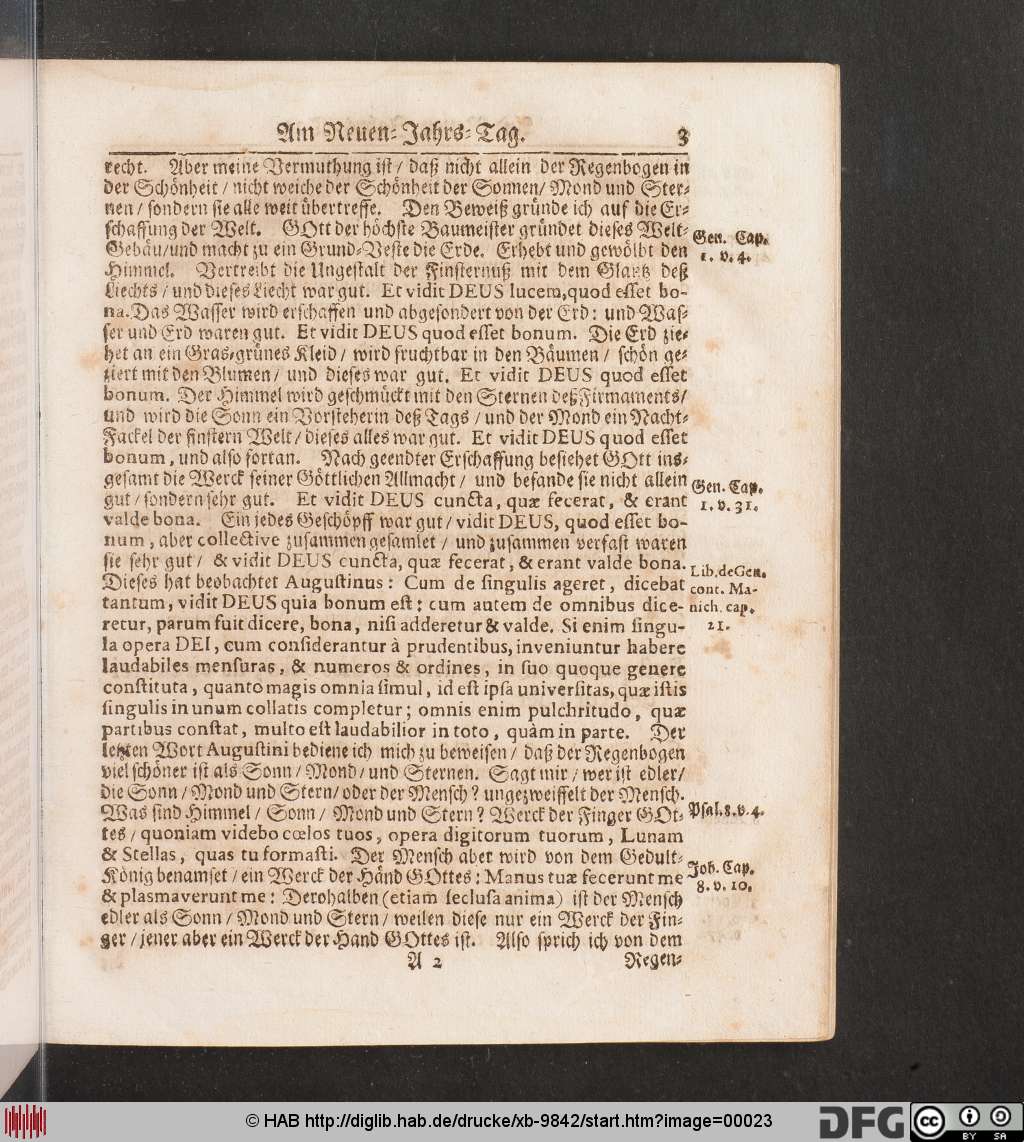 Am Neuen-Jahrs-Tag. 3
recht. Aber meine Vermuthung ist / daß nicht allein der Regenbogen in
der Schönheit / nicht weiche der Schönheit der Sonnen / Mond und Ster-
nen / sondern sie alle weit übertreffe. Den Beweiß gründe ich auf die Er-
schaffung der Welt. GOtt der höchste Baumeister gründet dieses Welt-
Gebäu / und macht zu ein Grund-Veste die Erde. Erhebt und gewölbt den
Himmel. Vertreibt die Ungestalt der Finsternuß mit dem Glantz deß
Liechts / und dieses Liecht war gut. Et vidit DEUS lucem, quod esset bo-
na. Das Wasser wird erschaffen und abgesondert von der Erd: und Was-
ser und Erd waren gut. Et vidit DEUS quod esset bonum. Die Erd zie-
het an ein Gras-grünes Kleid / wird fruchtbar in den Bäumen / schön ge-
ziert mit den Blumen / und dieses war gut. Et vidit DEUS quod esset
bonum. Der Himmel wird geschmückt mit den Sternen deß Firmaments /
und wird die Sonn ein Vorsteherin deß Tags / und der Mond ein Nacht-
Fackel der finstern Welt / dieses alles war gut. Et vidit DEUS quod esset
bonum, und also fortan. Nach geendter Erschaffung besiehet GOtt ins-
gesamt die Werck seiner Göttlichen Allmacht / und befande sie nicht allein
gut / sondern sehr gut. Et vidit DEUS cuncta, quæ fecerat, & erant
valde bona. Ein jedes Geschöpff war gut / vidit DEUS, quod esset bo-
num, aber collective zusammen gesamlet / und zusammen verfast waren
sie sehr gut / & vidit DEUS cuncta, quæ fecerat, & erant valde bona.
Dieses hat beobachtet Augustinus: Cum de singulis ageret, dicebat
tantum, vidit DEUS quia bonum est: cum autem de omnibus dice-
retur, parum fuit dicere, bona, nisi adderetur & valde. Si enim singu-
la opera DEI, cum considerantur à prudentibus, inveniuntur habere
laudabiles mensuras, & numeros & ordines, in suo quoque genere
constituta, quanto magis omnia simul, id est ipsa universitas, quæ istis
singulis in unum collatis completur; omnis enim pulchritudo, quæ
partibus constat, multo est laudabilior in toto, quàm in parte. Der
letzten Wort Augustini bediene ich mich zu beweisen / daß der Regenbogen
viel schöner ist als Sonn / Mond / und Sternen. Sagt mir / wer ist edler /
die Sonn / Mond und Stern / oder der Mensch? ungezweiffelt der Mensch.
Was sind Himmel / Sonn / Mond und Stern? Werck der Finger GOt-
tes / quoniam videbo cœlos tuos, opera digitorum tuorum, Lunam
& Stellas, quas tu formasti. Der Mensch aber wird von dem Gedult-
König benamset / ein Werck der Händ GOttes: Manus tuæ fecerunt me
& plasmaverunt me: Derohalben (etiam seclusa anima) ist der Mensch
edler als Sonn / Mond und Stern / weilen diese nur ein Werck der Fin-
ger / jener aber ein Werck der Hand GOttes ist. Also sprich ich von dem
A 2 Regen-
Gen. Cap.
1. v. 4.
Gen. Cap.
1. v. 31.
Lib. de Gen.
cont. Ma-
nich. cap.
21.
Psal. 8. v. 4.
Job. Cap.
8. v. 10.
© HAB http://diglib.hab.de/drucke/xb-9842/start.htm?image=00023
DFG cc BY SA